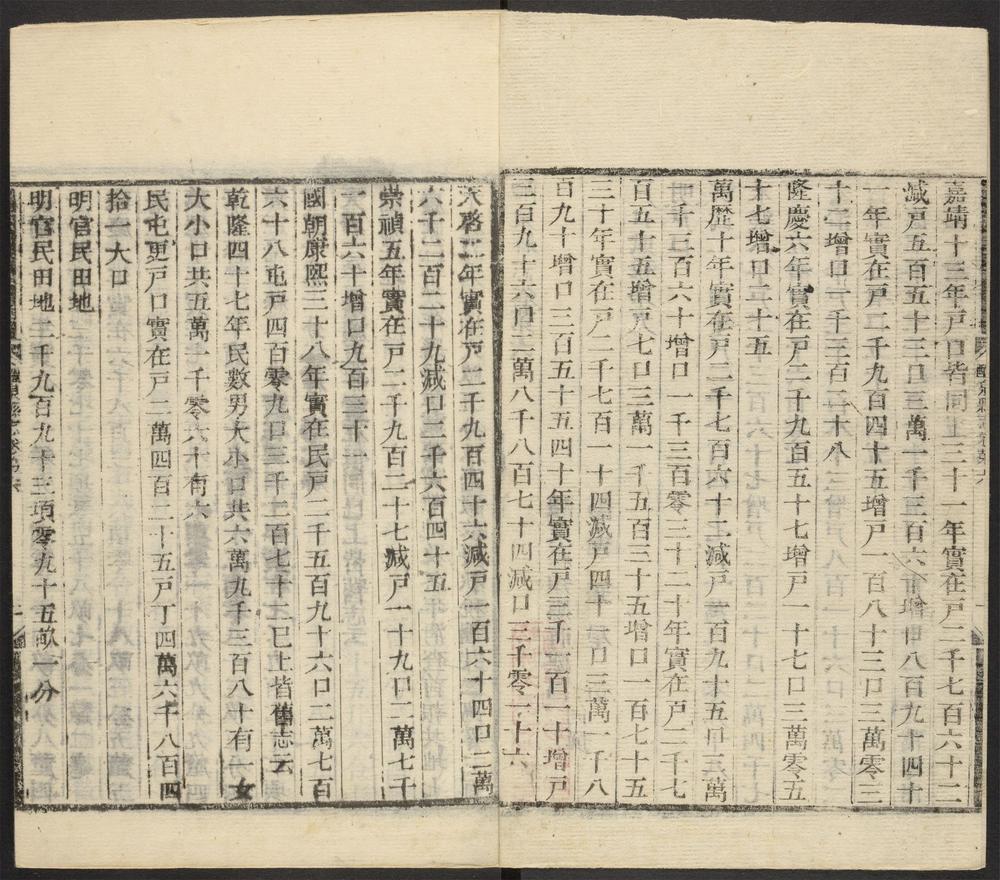 嘉靖十三年戶口皆同上三十一年實在戶二千七百六十二
減戶五百五十三口三萬一千三百六十增口八百九十四四十
一年實在戶二千九百四十五增戶一百八十三口三萬零三
十二增口一千三百二十八
隆慶六年實在戶二千九百五十七增戶一十七口三萬零五
十七增口二十五
萬歷十年實在戶二千七百六十二減戶一百九十五口三萬
一千三百六十增口一千三百零三十二十年實在戶二千七
百五十五增戶七口三萬一千五百三十五增口一百七十五
三十年實在戶二千七百一十四減戶四十一口三萬一千八
百九十增口三百五十五四十年實在戶三千一百一十增戶
三百九十六口二萬八千八百七十四減口三千零一十六
天啓二年實在戶二千九百四十六減戶一百六十四口二萬
六千二百二十九減口二千六百四十五
崇禎五年實在戶二千九百二十七減戶一十九口二萬七千
一百六十增口九百三十一
國朝康熙三十八年實在民戶二千五百九十六口二萬七百
六十八屯戶四百零九口三千二百七十二已上皆舊志云
乾隆四十七年民數男大小口共六萬九千三百八十有一女
大小口共五萬一千零六十有六
民屯更戶口實在戶二萬四百二十五戶丁四萬六千八百四
拾一大口
明官民田地
明官民田地二千九百九十三頃零九十五畝一分